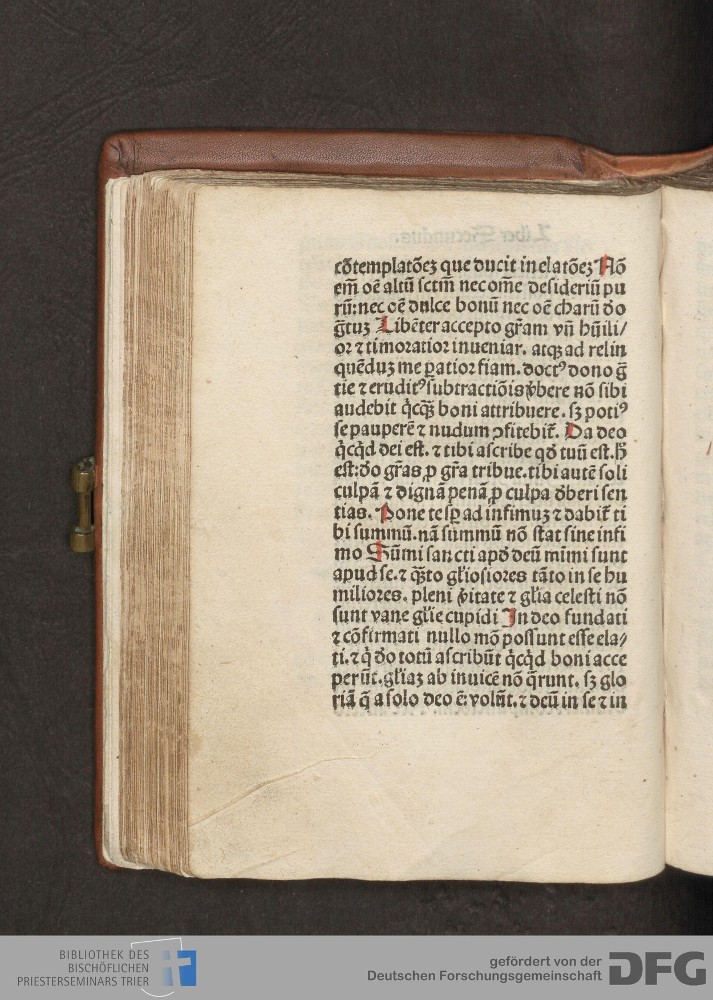 cōtemplatōeꝫ que ducit in elatōeꝫ Nō
em̄ oē altū sctm̄ nec om̄e desideriū pu
rū: nec oē dulce bonū nec oē charū do
g̃tuꝫ Libēter accepto gr̄am vn̄ hūili/
or ⁊ timoratior inueniar. atqꝫ ad relin
quēduꝫ me ꝑatior fiam. doctꝰ dono g̃
tie ⁊ eruditꝰ subtractiōis v̾bere nō sibi
audebit q̇cqꝫ̄ boni attribuere. sꝫ potiꝰ
se pauperē ⁊ nudum ↄfitebit᷑. Da deo
q̇cq̇d dei est. ⁊ tibi ascribe qđ tuū est. h̄
est: đo gr̄as ꝓ gr̄a tribue. tibi autē soli
culpā ⁊ dignā penā ꝓ culpa đberi sen
tias. Pone te sꝑ ad infimuꝫ ⁊ dabit᷑ ti
bi summū. nā summū nō stat sine infi
mo Sūmi sancti apđ deū mīmi sunt
apud se. ⁊ qꝫ̄to gl̄iosiores tāto in se hu
miliores. pleni v̾itate ⁊ gl̄ia celesti nō
sunt vane gl̄ie cupidi In deo fundati
⁊ cōfirmati nullo mō possunt esse ela/
ti. ⁊ q̇ đo totū ascribūt q̇cq̇d boni acce
perūt. gl̄iaꝫ ab inuicē nō q̄runt. sꝫ glo
riā q̄ a solo deo ē: volūt. ⁊ deū in se ⁊ in
BIBLIOTHEK DES
BISCHÖFLICHEN
PRIESTERSEMINARS TRIER
gefördert von der
Deutschen Forschungsgemeinschaft
DFG